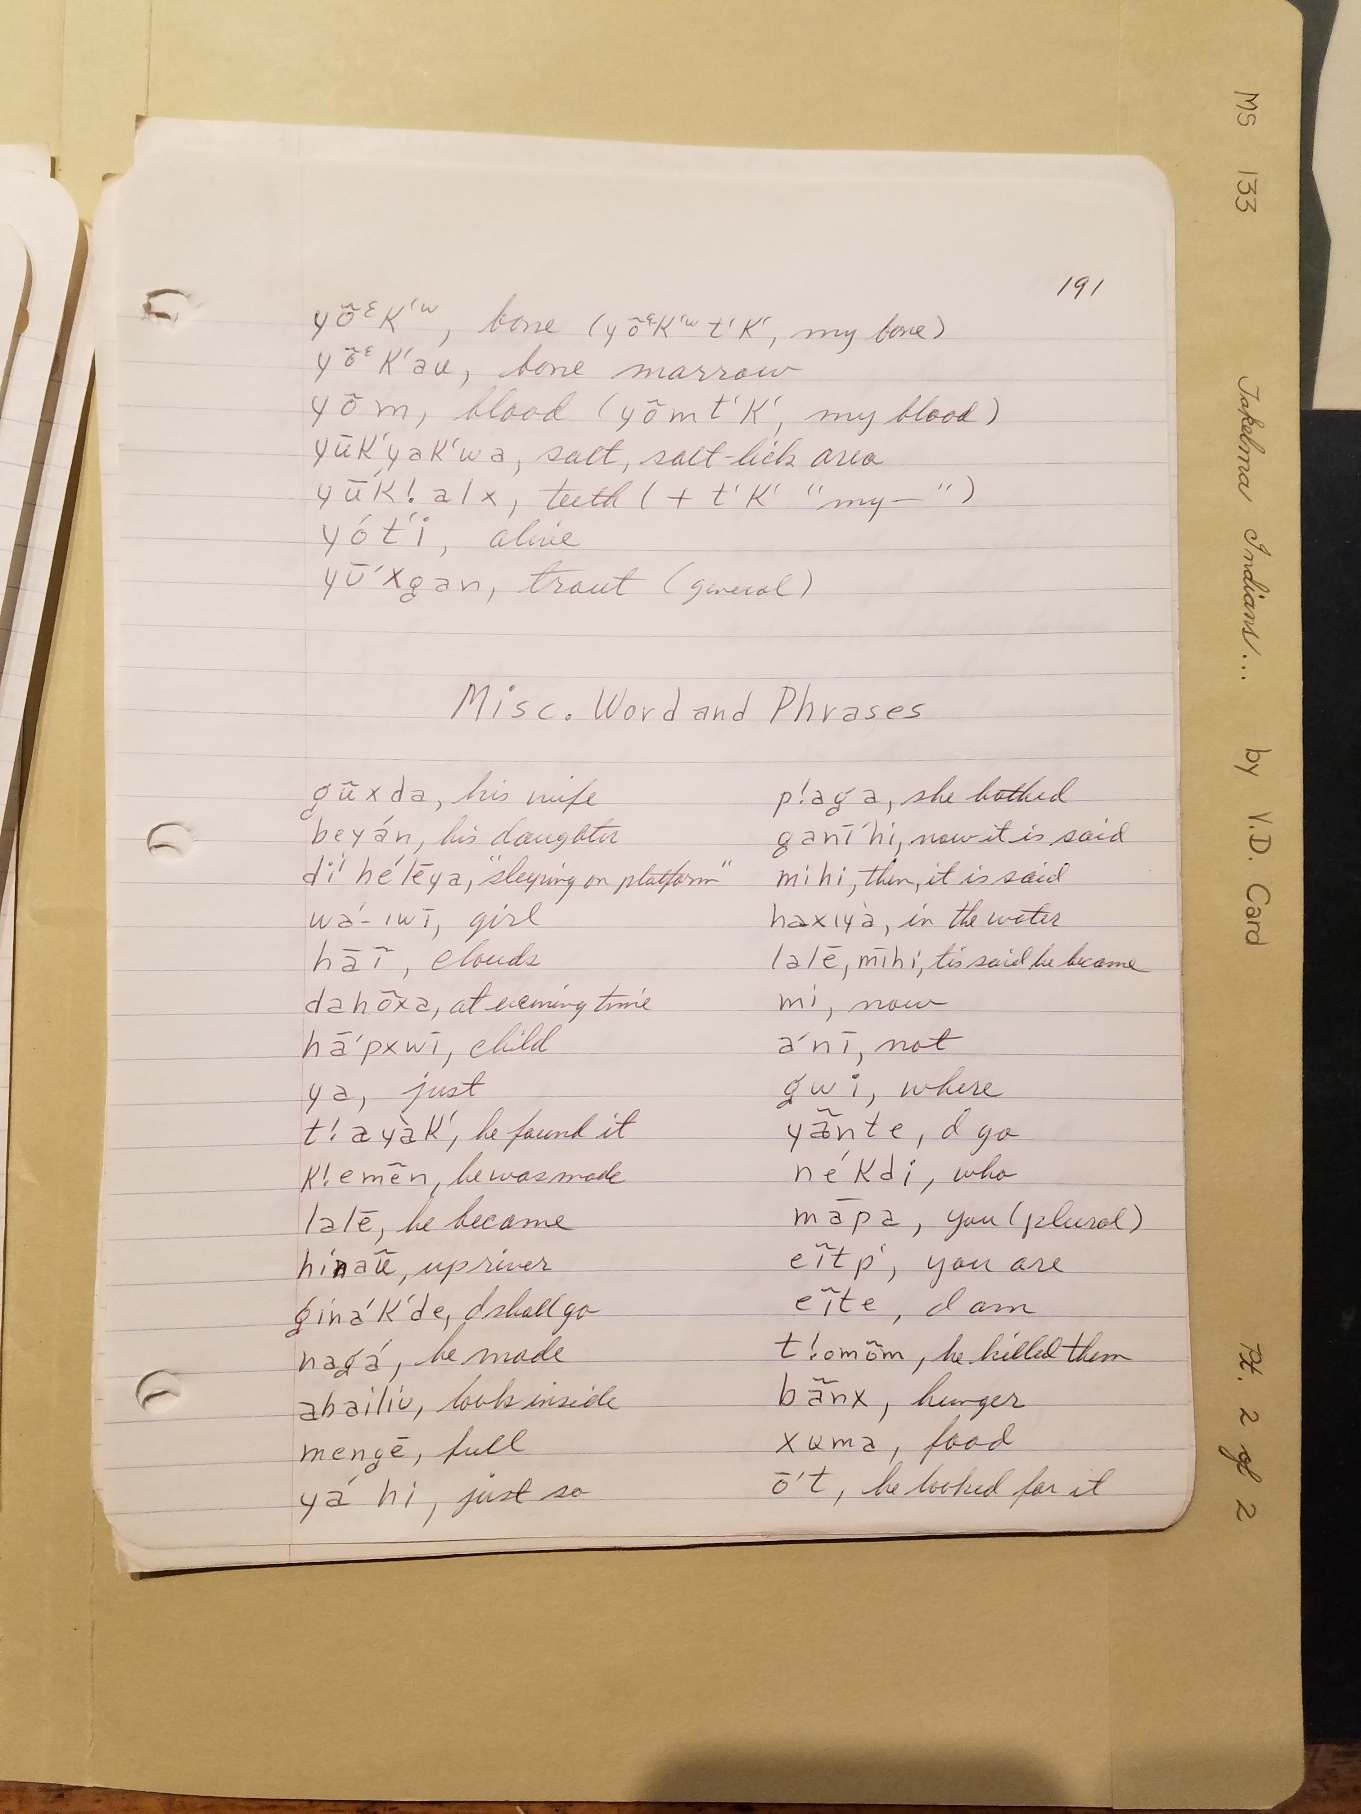 191
yõᵋK'ʷ, bone (yõᵋK'ʷt'K', my bone)
yõᵋK'au, bone marrow
yōm, blood (yõmt'K', my blood)
yūK'yaK'wa, salt, salt-lick area
yūK!alx, teeth (+ t'K' "my—")
yót'i, alive
yū'xgan, trout (general)
Misc. Word and Phrases
gũxda, his wife
beyán, his daughter
di' hélēya, "sleeping on platform"
wá-ıwī, girl
hāĩ, clouds
dahõxa, at evening time
hā'pxwī, child
ya, just
t!ayàK', he found it
K!emẽn, he was made
lalē, he became
hinaũ, up river
giná'K'de, I shall go
nagá, he made
abailiu, look inside
mengē, full
yá hi, just so
p!aga, she bathed
ganī'hi, now it is said
mihi, then, it is said
haxıyà, in the water
lalē, mīhi, tis said he became
mi, now
á'nī, not
gwi, where
yãnte, I go
né'Kdi, who
māpa, you (plural)
eĩtp', you are
eĩte, I am
t!omõm, he killed them
bãnx, hunger
xuma, food
ō't, he looked for it
MS 133 Takelma Indians... by V.D. Card Pt. 2 of 2